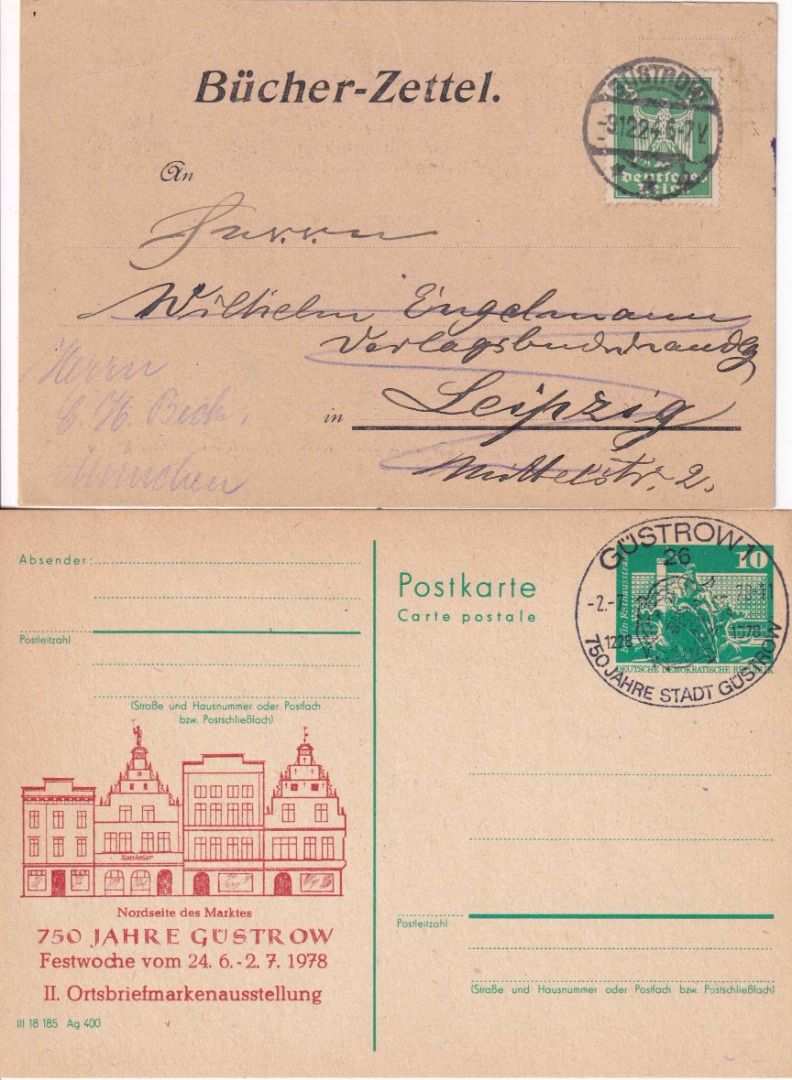 Bücher-Zettel.
GÜSTROW
-9.12.24.6-7V.
Deutsches
Reich
An
Herrn
Wilhelm Engelmann
Verlagsbuchhandlg
in Leipzig
Mittelstr. 2.
Herrn
C. H. Beck,
München
Absender:
Postleitzahl
(Straße und Hausnummer oder Postfach
bzw. Postschließfach)
Postkarte
Carte postale
GÜSTROW 1
26
10
1228
1978
750 JAHRE STADT GÜSTROW
DEUTSCHE DEMOKRATISCHE REPUBLIK
Ratskeller
Nordseite des Marktes
750 JAHRE GÜSTROW
Festwoche vom 24. 6.-2. 7. 1978
II. Ortsbriefmarkenausstellung
III 18 185 Ag 400
Postleitzahl
(Straße und Hausnummer oder Postfach bzw. Postschließfach)